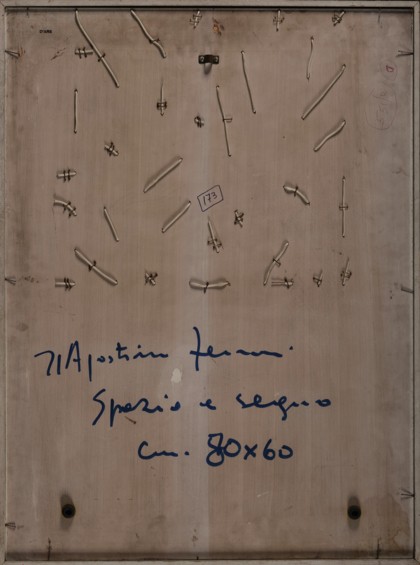 173
71 Agostino Ferrari
Spazio e segno
cm. 80x60